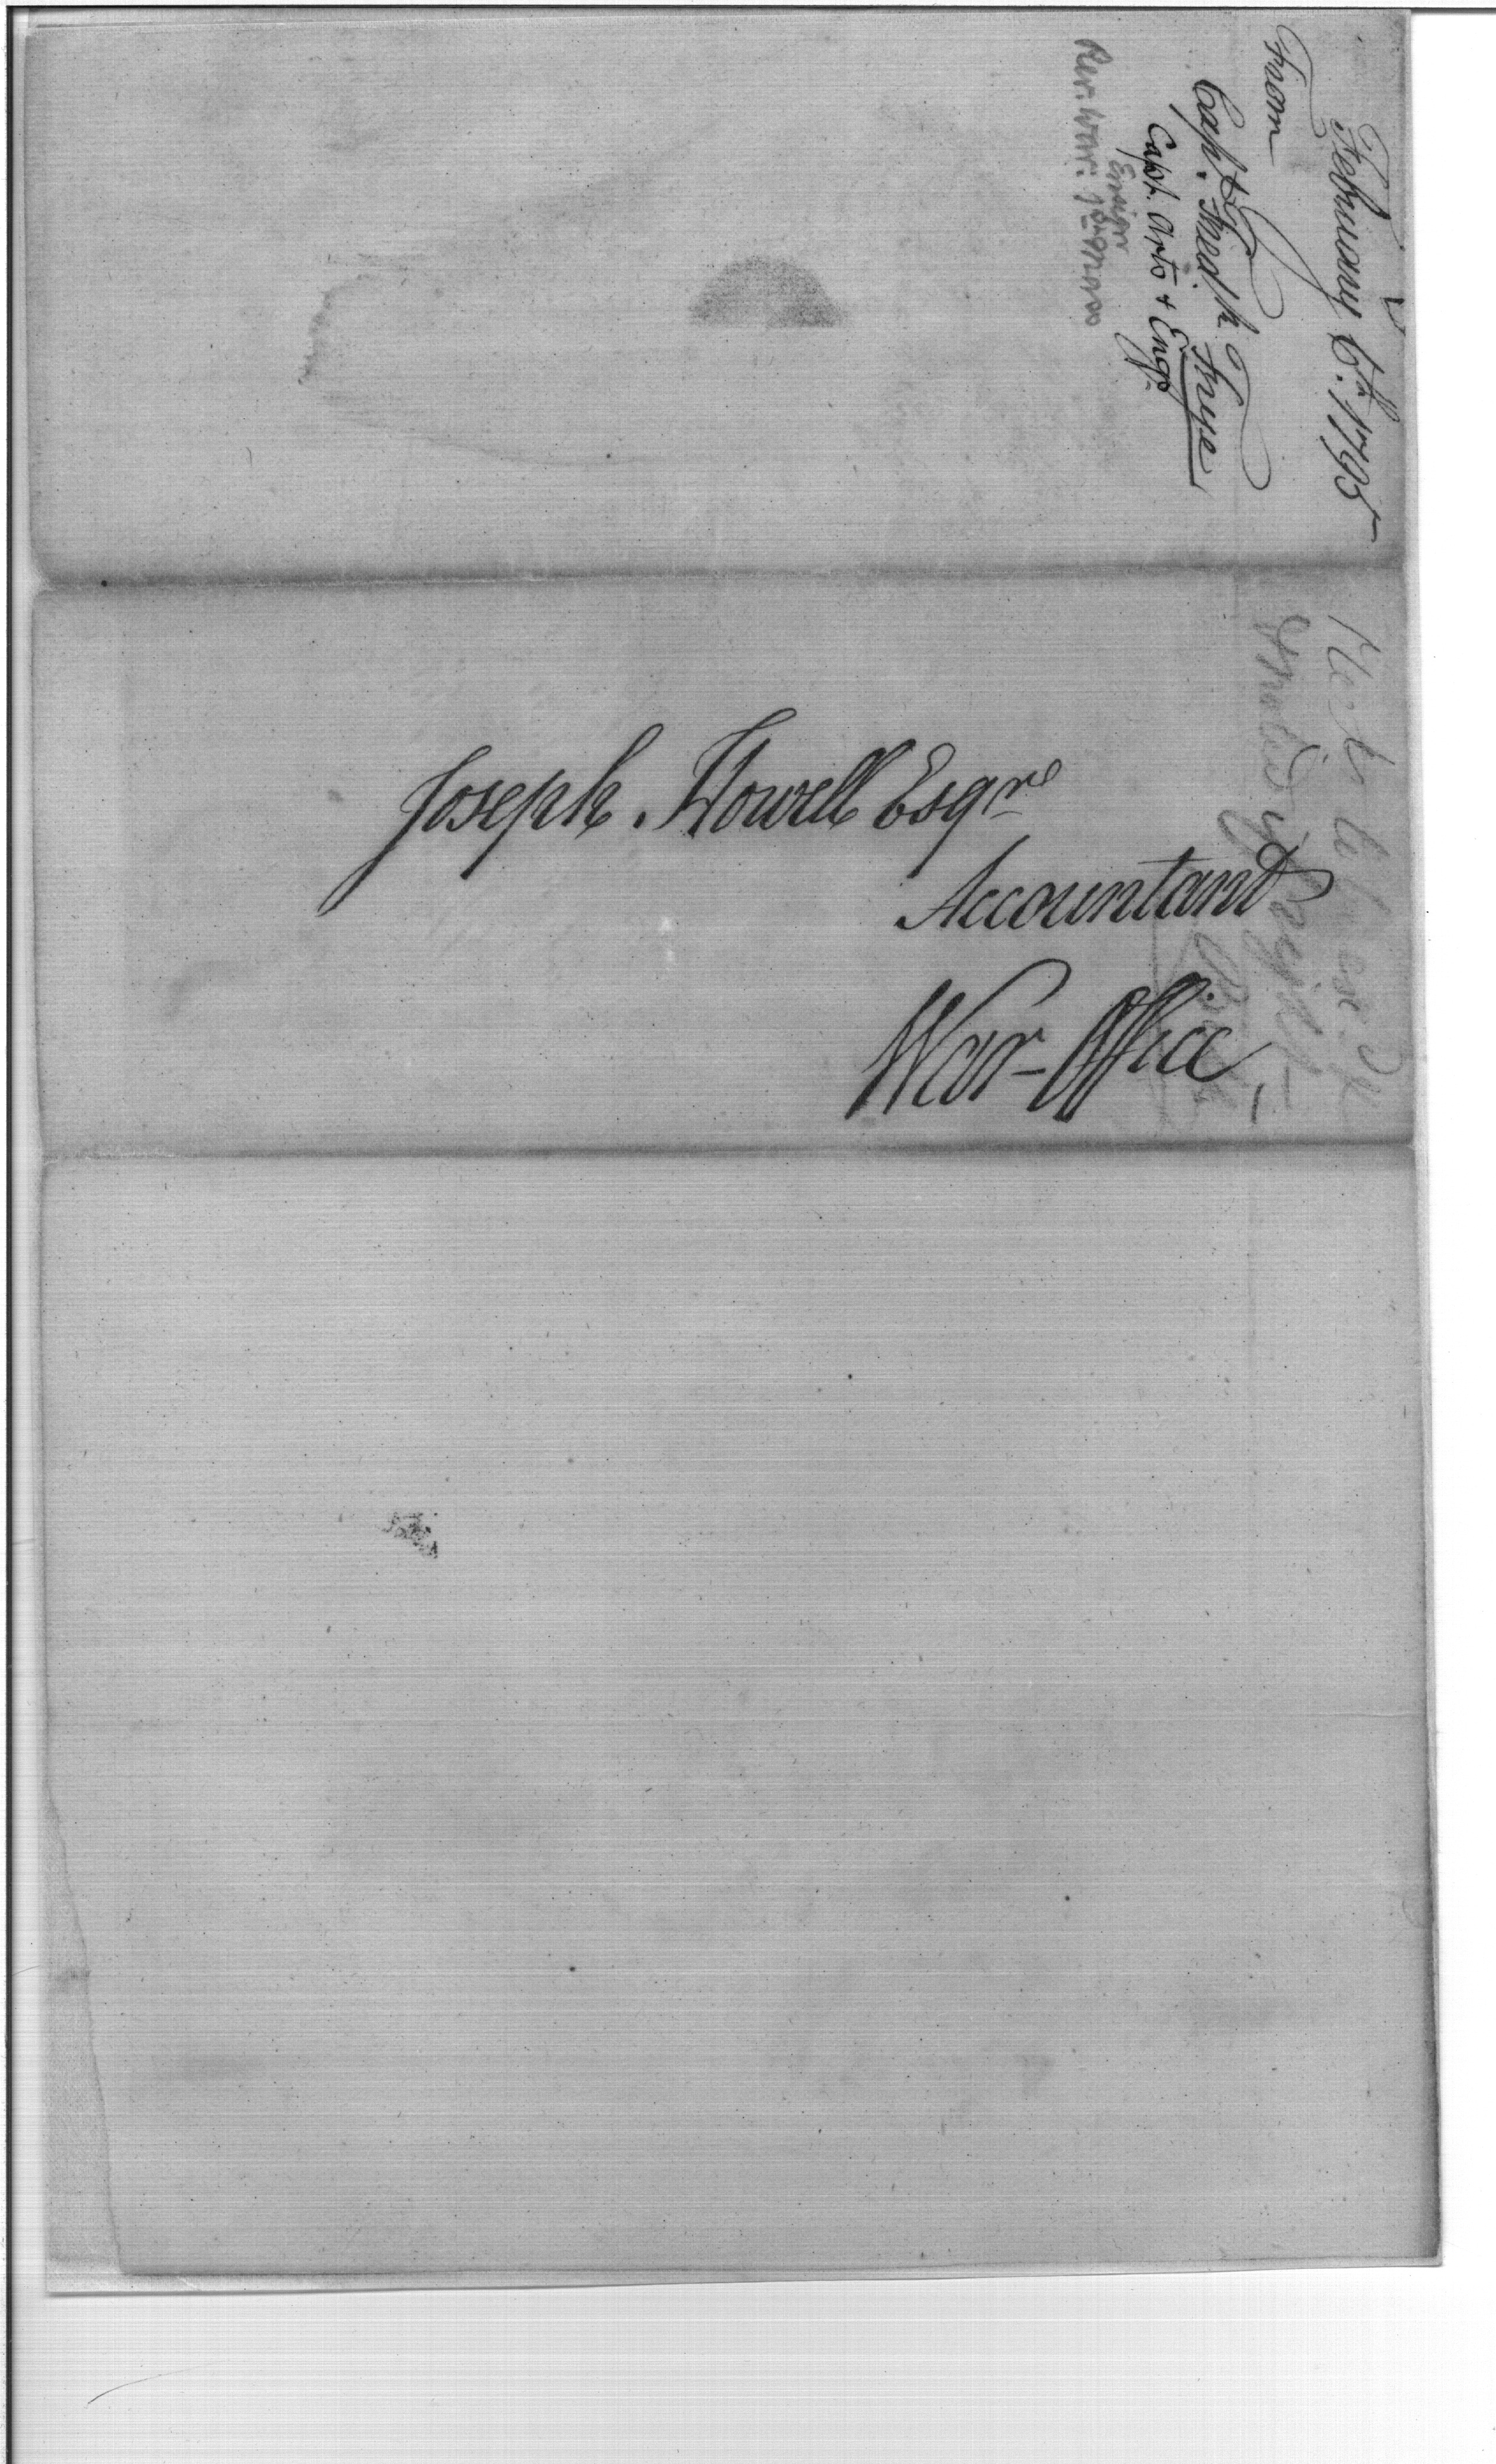 February 6th. 1795
From
Capt. Fredk Frye
Capt. Arts + Engs
Ensign
Rev. War. 1st Mass
Joseph Howell Esqre
Accountant
War-Office